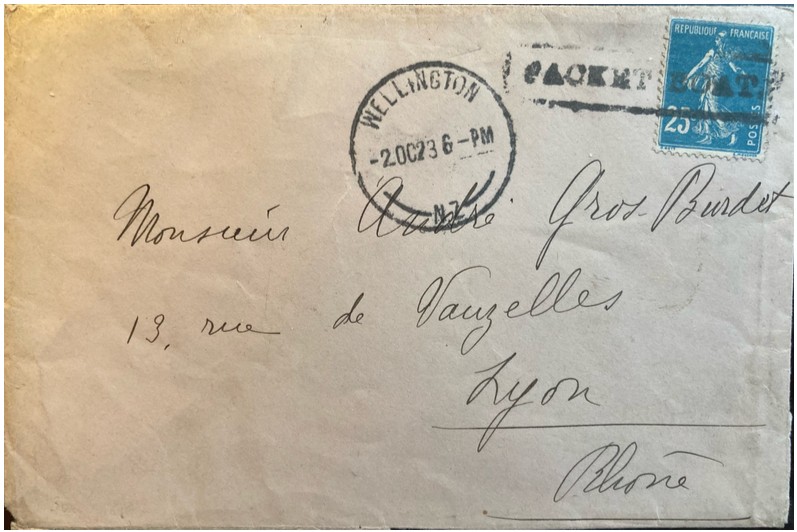 REPUBLIQUE FRANÇAISE
25
POSTES
PACKET BOAT.
WELLINGTON
-2.OC23 6-PM
NZ
Monsieur André Gros-Burdet
13, rue de Vauzelles
Lyon
Rhône